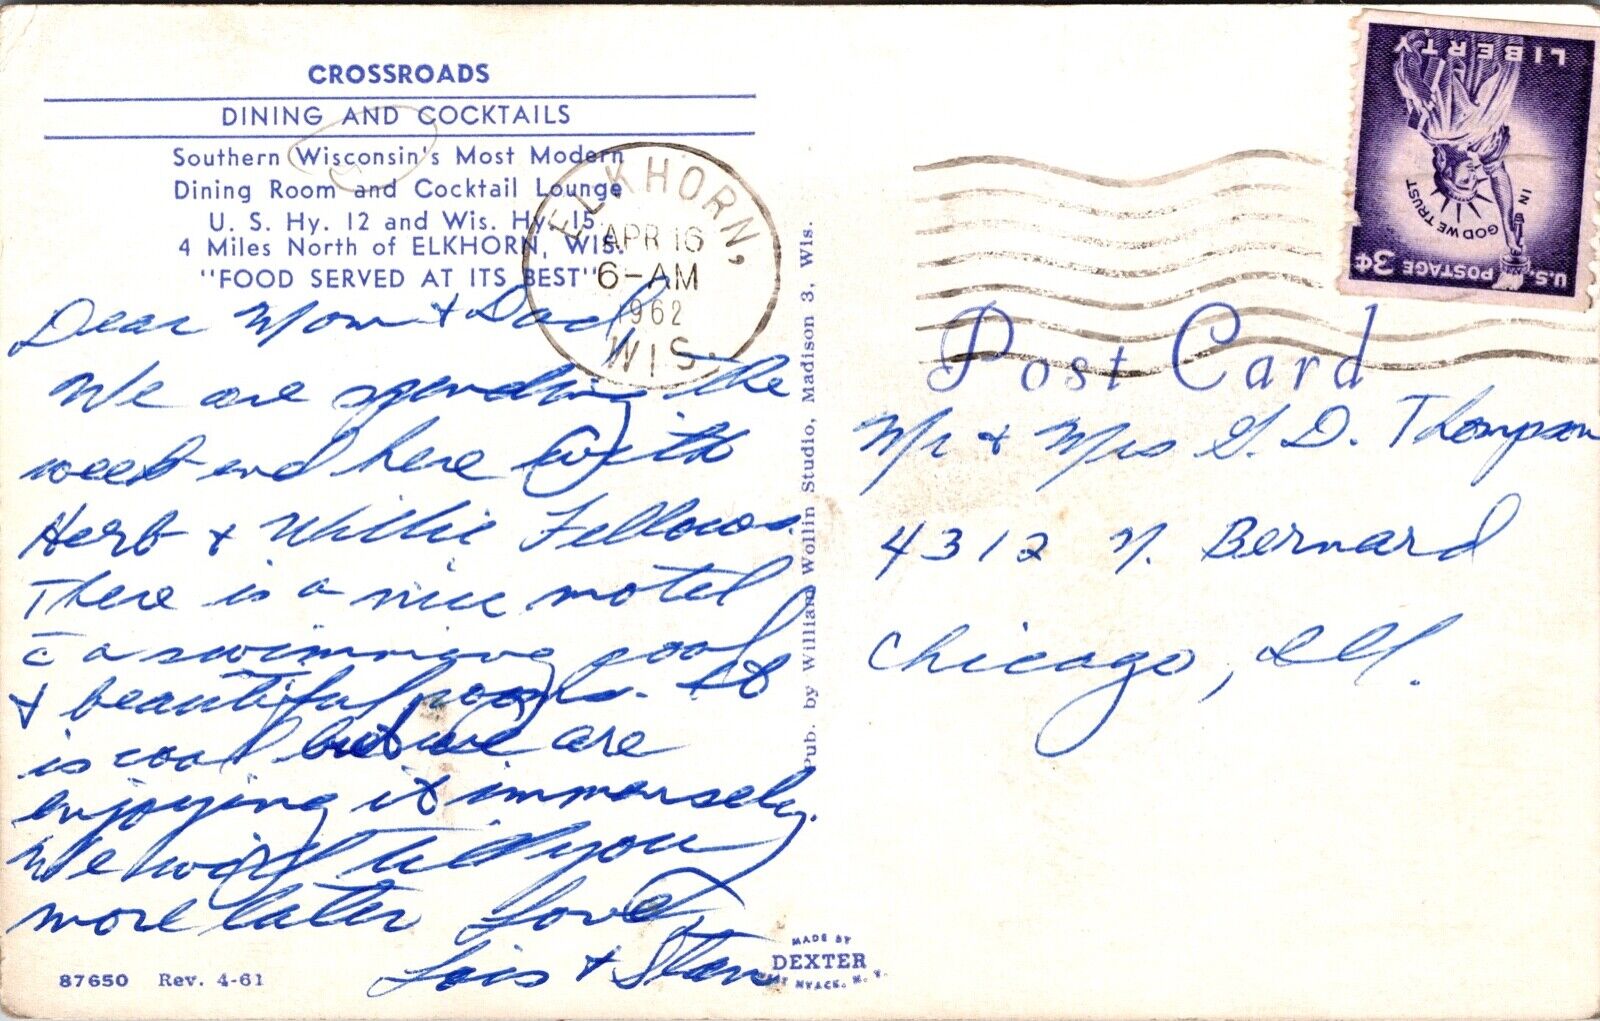 CROSSROADS
DINING AND COCKTAILS
Southern Wisconsin's Most Modern
Dining Room and Cocktail Lounge
U. S. Hy. 12 and Wis. Hy. 15,
4 Miles North of ELKHORN, Wis.
"FOOD SERVED AT ITS BEST"
ELKHORN,
APR 16
6-AM
1962
WIS.
Dear Mom & Dad,
We are spending the
week end here with
Herb & Willie Fellows.
There is a nice motel
c̄ a swimming pool
& beautiful rooms. It
is cool but we are
enjoying it immensely.
We will tell you
more later Love,
Lois & Stan
87650 Rev. 4-61
Pub. by William Wollin Studio, Madison 3, Wis.
MADE BY
DEXTER
WEST NYACK, N. Y.
LIBERTY
IN GOD WE TRUST
U.S. POSTAGE 3¢
Post Card
Mr & Mrs G. D. Thompson
4312 N. Bernard
Chicago, Ill.